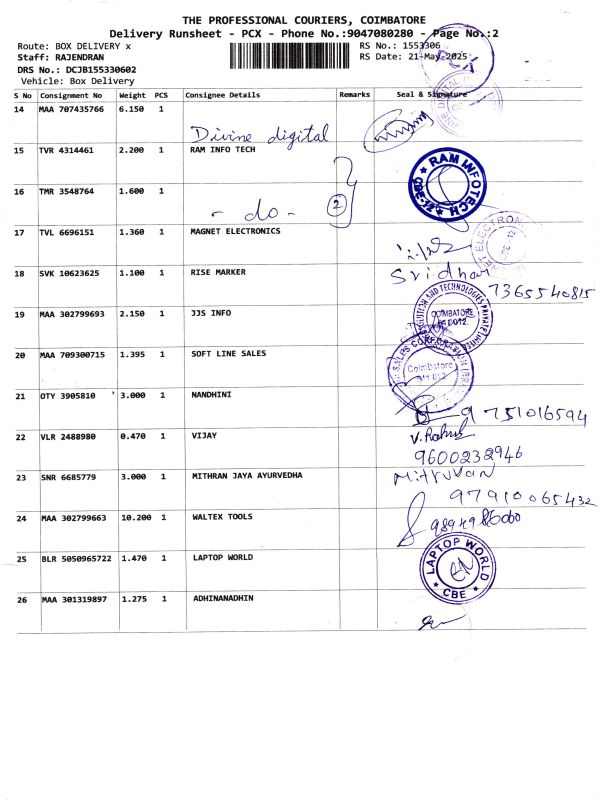 THE PROFESSIONAL COURIERS, COIMBATORE
Delivery Runsheet - PCX - Phone No.:9047080280 - Page No.:2
Route: BOX DELIVERY x
RS No.: 1553306
Staff: RAJENDRAN
RS Date: 21-May-2025
DRS No.: DCJB155330602
Vehicle: Box Delivery
S No Consignment No Weight PCS Consignee Details Remarks Seal & Signature
14 MAA 707435766 6.150 1
Divine digital
15 TVR 4314461 2.200 1 RAM INFO TECH
RAM INFOTECH
CBE-12
16 TMR 3548764 1.600 1
- do - 2
17 TVL 6696151 1.360 1 MAGNET ELECTRONICS
18 SVK 10623625 1.100 1 RISE MARKER
Sridhar
7365540815
19 MAA 302799693 2.150 1 JJS INFO
AND TECHNOLOGIES PRIVATE LIMITED
COIMBATORE
20 MAA 709300715 1.395 1 SOFT LINE SALES
SALES CORPORATION
Coimbatore
641 012
21 OTY 3905810 3.000 1 NANDHINI
9751016594
22 VLR 2488980 0.470 1 VIJAY
V. Rahul
9600232946
23 SNR 6685779 3.000 1 MITHRAN JAYA AYURVEDHA
Mitruvan
97910065432
24 MAA 302799663 10.200 1 WALTEX TOOLS
25 BLR 5050965722 1.470 1 LAPTOP WORLD
LAPTOP WORLD
CBE
26 MAA 301319897 1.275 1 ADHINANADHIN